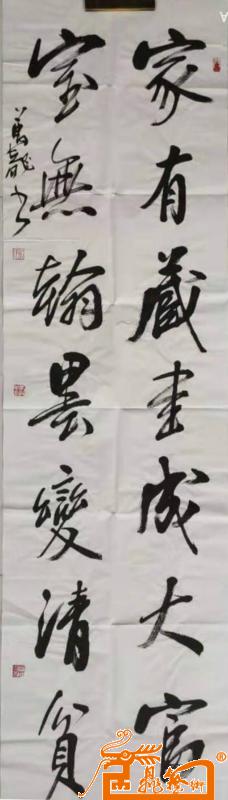 家有藏書成大富
室無翰墨變清貧
萬龍書